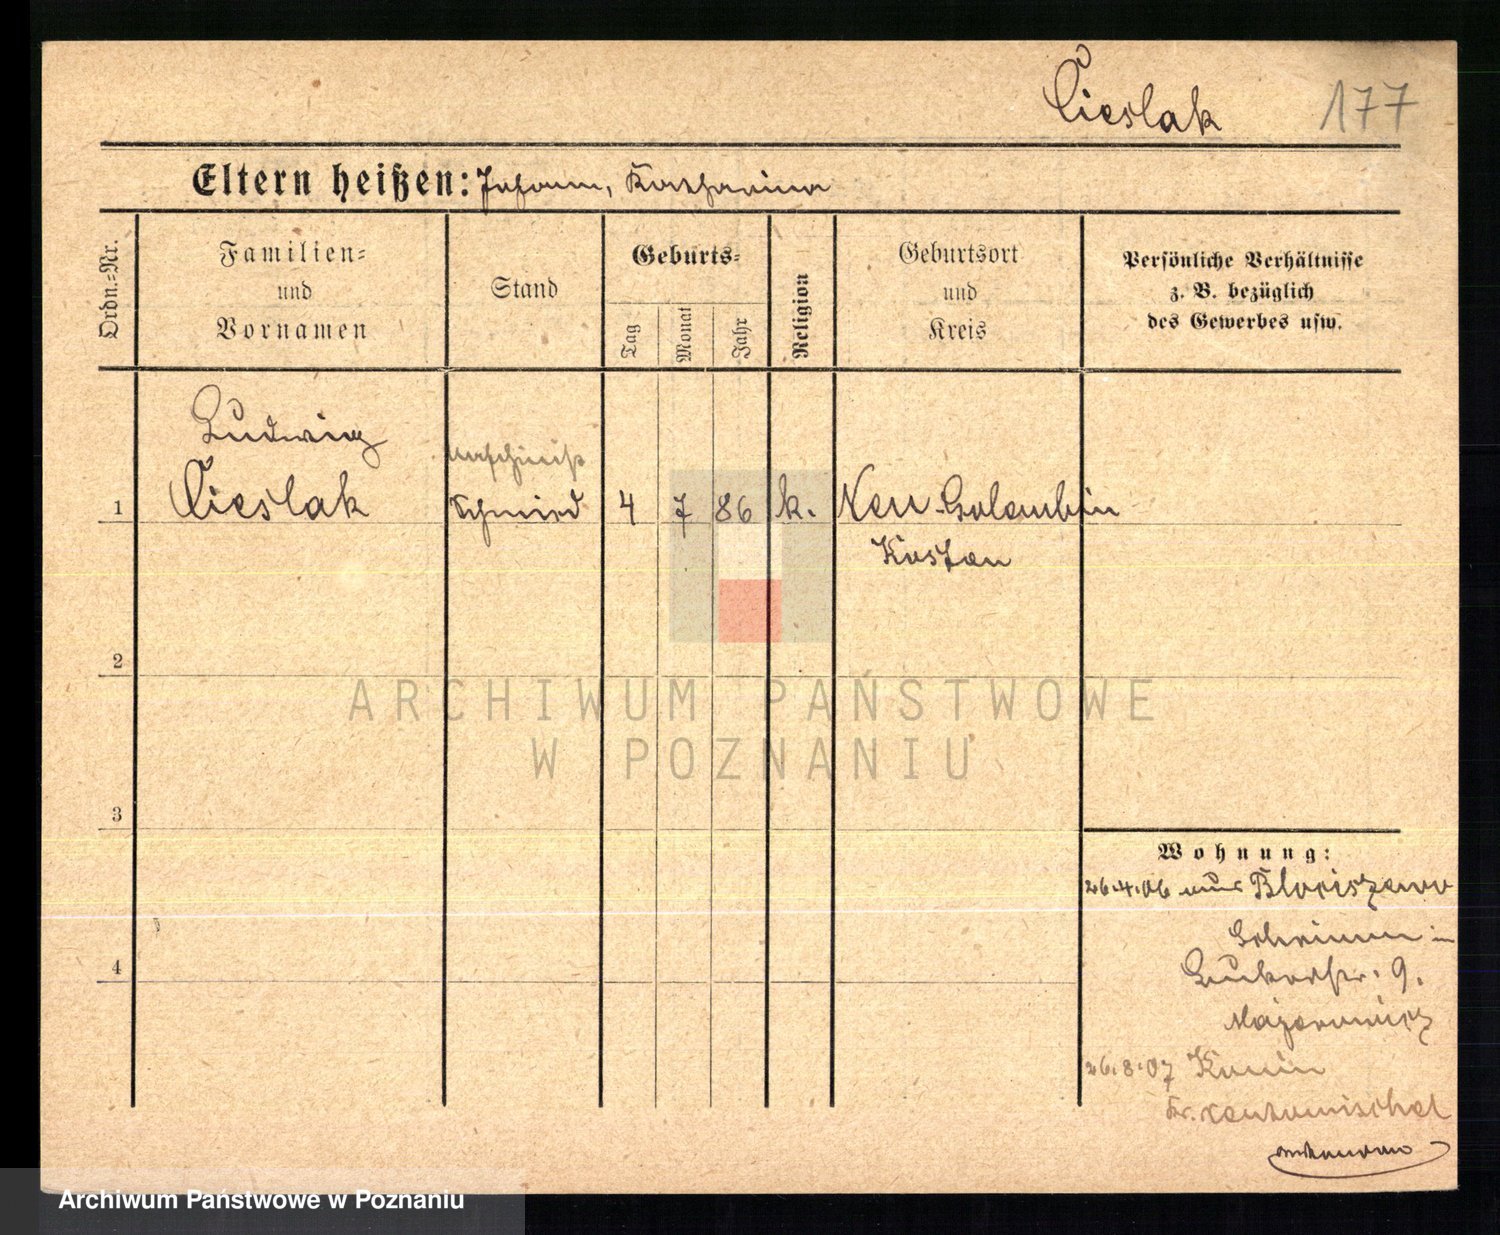 Cieslak 177
Eltern heißen: Johann, Katharina
Ordn.=Nr.
Familien=
und
Vornamen
Stand
Geburts=
Tag
Monat
Jahr
Religion
Geburtsort
und
Kreis
Persönliche Verhältnisse
z. B. bezüglich
des Gewerbes usw.
Ludwig
1 Cieslak Schmied 4 7 86 k. Neu Golembin
Kosten
2
3
4
ARCHIWUM PAŃSTWOWE
W POZNANIU
Wohnung:
26.4.06 aus
in
9.
26.8.07
Kr.
Archiwum Państwowe w Poznaniu